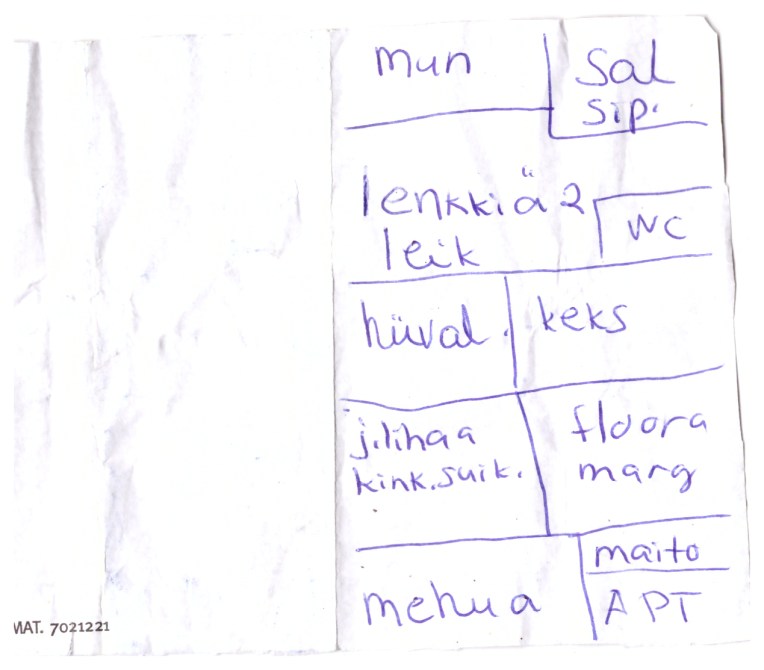 mun
Sal
sip.
lenkkiä 2
leik
WC
hiival.
keks
j.lihaa
kink.suik.
floora
marg
mehua
maito
APT
MAT. 7021221